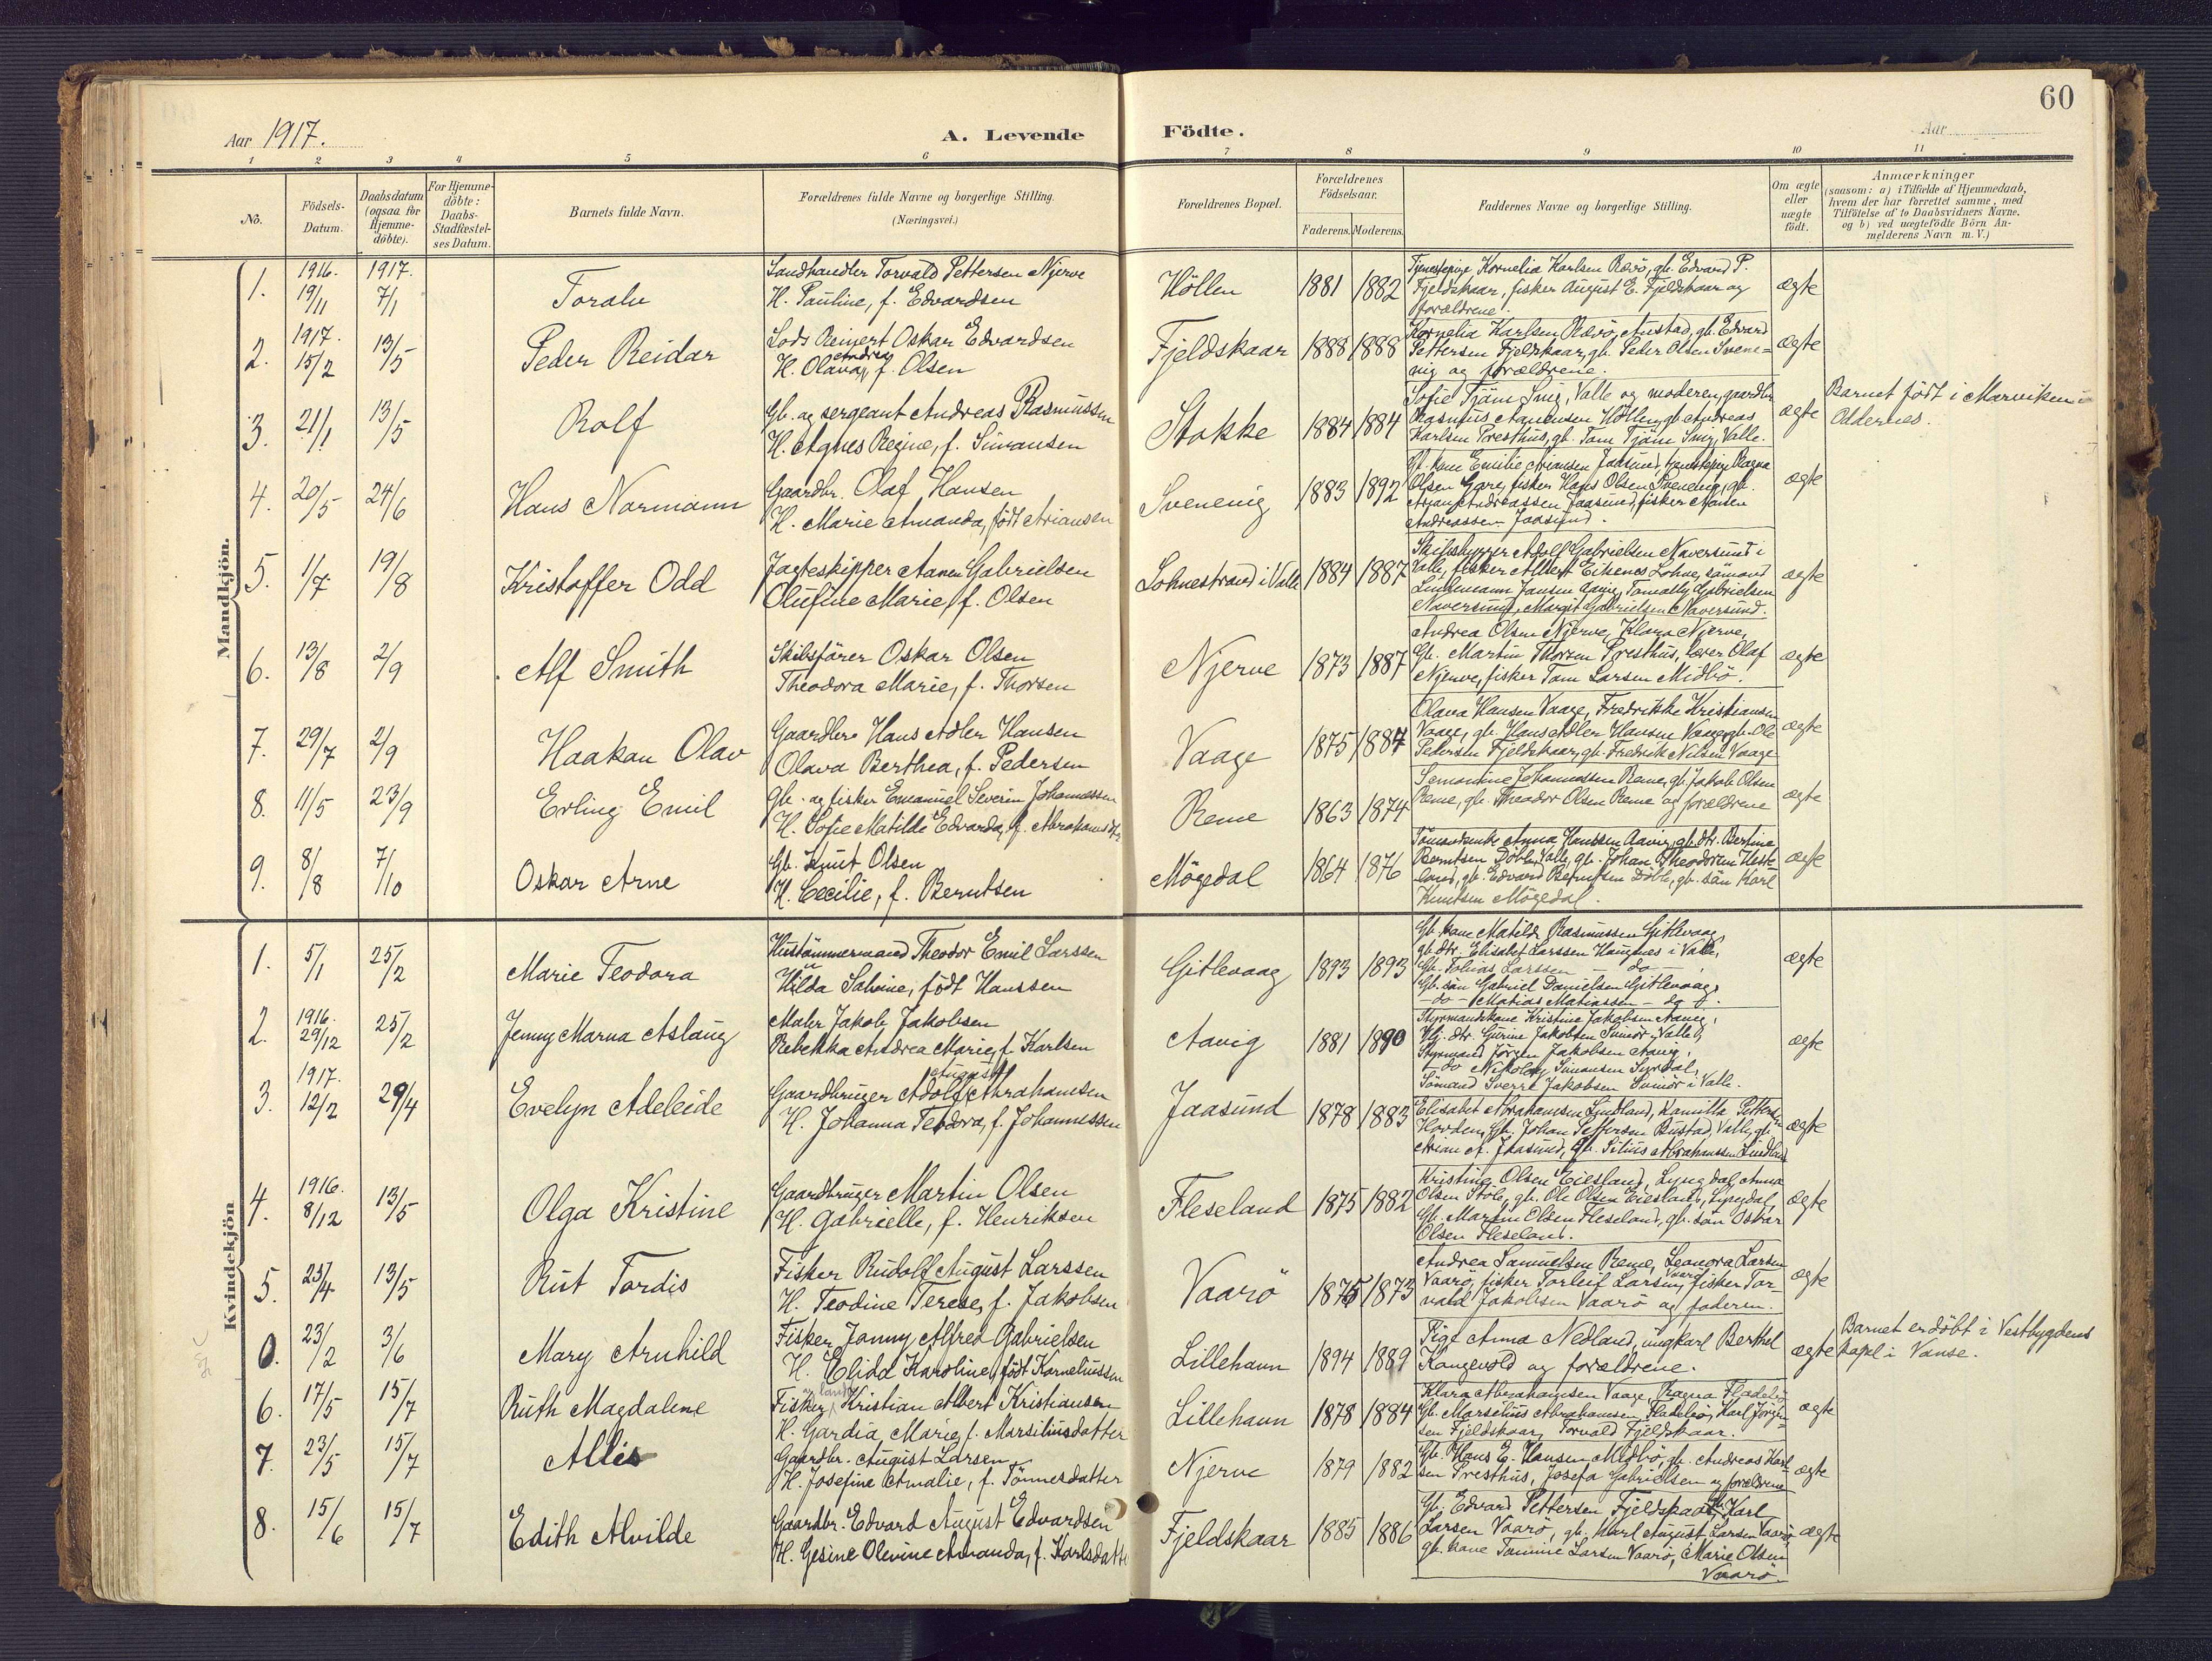 60
Aar 1917.
A. Levende Födte.
Aar
1 2 3 4 5 6 7 8 9 10 11
No.
Födsels-Datum.
Daabsdatum (ogsaa for Hjemme-döbte).
For Hjemme-döbte: Daabs-Stadfæstel-ses Datum.
Barnets fulde Navn.
Forældrenes fulde Navne og borgerlige Stilling.
(Næringsvei.)
Forældrenes Bopæl.
Forældrenes Födselsaar.
Faderens. Moderens.
Faddernes Navne og borgerlige Stilling.
Om ægte eller uægte födt.
Anmærkninger
(saasom: a) i Tilfælde af Hjemmedaab,
hvem der har forrettet samme, med
Tilföielse af to Daabsvidners Navne,
og b) ved uægtefödte Börn An-
melderens Navn m. V.)
Mandkjön.
1. 1916. 19/11 1917. 7/1 Toralv
Landhandler Torvald Pettersen Njerve
H. Pauline, f. Edvardsen
Höllen 1881 1882
Tjenestepige Kornelia Karlsen Revö, gb. Edvard P.
Fjeldskaar, fisker August E. Fjeldskaar og
forældrene.
ægte
2. 1917. 15/2 13/5 Peder Reidar
Lods Reinert Oskar Edvardsen
H. Olava Andrea, f. Olsen
Fjeldskaar 1888 1888
Kornelia Karlsen Revö, Austad, gb. Edvard
Pettersen Fjeldskaar, gb. Peder Olsen Svene-
vig og forældrene.
ægte
3. 21/1 13/5 Rolf
Gb. og sergeant Andreas Rasmussen
H. Agnes Regine, f. Simonsen
Stokke 1884 1884
Sofie Tjöm Snig, Valle og moderen, gaardbr.
Rasmus Aanensen Höllen, gb. Andreas
Karlsen Presthus, gb. Tom Tjöm Snig, Valle.
ægte
Barnet födt i Marviken i
Oddernes.
4. 20/5 24/6 Hans Normann
Gaardbr. Olaf Hansen
H. Marie Amanda, födt Ariansen
Svenevig 1883 1892
Gb. kone Emilie Ariansen Jaasund, tjenestepige Ragna
Olsen Gare, fisker Hans Olsen Svenevig, gb.
Arian Andreassen Jaasund, fisker Aanen
Andreassen Jaasund.
ægte
5. 1/7 19/8 Kristoffer Odd
Jagteskipper Aanen Gabrielsen
Olufine Marie, f. Olsen
Lohnestrand i Valle 1884 1887
Skibsbygger Adolf Gabrielsen Naversund i
Valle, fisker Albert Lohne, sömand
Lindemann Jansen Aavig, Gabrielsen
Naversund, Margit Gabrielsen Naversund.
ægte
6. 13/8 2/9 Alf Smith
Skibsförer Oskar Olsen
Theodora Marie, f. Thorsen
Njerve 1873 1887
Andrea Olsen Njerve, Klara Njerve,
Gb. Martin Thorsen Presthus, lærer Olaf
Njerve, fisker Tom Larsen Midbö.
ægte
7. 29/7 2/9 Haakon Olav
Gaardbr. Hans Adler Hansen
Olava Berthea, f. Pedersen
Vaage 1875 1884
Olava Hansen Vaage, Fredrikke Kristiansen
Vaage, gb. Hans Adler Hansen Vaage, gb. Ole
Pedersen Fjeldskaar, gb. Fredrik Nilsen Vaage
ægte
8. 11/5 23/9 Erling Emil
Gb. og fisker Emanuel Severin Johannessen
H. Sofie Matilde Edvarda, f. Abrahamsdtr.
Reme 1863 1874
Johannessen Reme, gb. Jakob Olsen
Reme, gb. Theodor Olsen Reme og forældrene
ægte
9. 8/8 7/10 Oskar Arne
Gb. Knut Olsen
H. Cecilie, f. Berntsen
Mögedal 1864 1876
Sömandsenke Anna Hanssen Aavig, gb. dtr. Bertine
Berntsen Döble, Valle, gb. Johan Theodorsen Heste-
land, gb. Edvard Berntsen Döble, gb. sön Karl
Knutsen Mögedal.
ægte
Kvindekjön
1. 5/1 25/2 Marie Teodora
Hustömmermand Theodor Emil Larssen
Hilda Sabine, födt Hanssen
Gitlevaag 1893 1893
Gb. kone Matilde Rasmussen Gitlevaag,
gb. dtr. Elisabet Larssen Haugnes i Valle,
Gb. Tobias Larssen - do -,
Gb. sön Gabriel Danielsen Gitlevaag,
- do - Matias Matiassen - do -.
ægte
2. 1916. 29/12 25/2 Jenny Marna Aslaug
Maler Jakob Jakobsen
Rebekka Andrea Marie, f. Karlsen
Aavig 1881 1890
Styrmandskone Kristine Jakobsen Aavig,
dtr. Gurine Jakobsen Valle,
Styrmand Jörgen Jakobsen Aavig,
- do - Nikolay Simonsen Syrdal,
Sömand Sverre Jakobsen i Valle.
ægte
3. 1917. 12/2 29/4 Evelyn Adeleide
Gaardbruger Adolf August Abrahamsen
H. Johanna Teodora, f. Johannessen
Jaasund 1878 1883
Elisabet Abrahamsen Lindland, Kamilla Pettersen
Hovden, Gb. Johan Seffersen Bustad, Valle, gb.
Arian A. Jaasund, gb. Abrahamsen Lindland
ægte
4. 1916. 8/12 13/5 Olga Kristine
Gaardbruger Martin Olsen
H. Gabrielle, f. Henriksen
Fleseland 1875 1882
Kristine Olsen Eiesland, Lyngdal, Anna
Olsen Stöle, gb. Ole Olsen Eiesland, Lyngdal,
Gb. Martin Olsen Fleseland, gb. sön Oskar
Olsen Fleseland.
ægte
5. 25/4 13/5 Rut Tordis
Fisker Rudolf August Larssen
H. Teodine Terese, f. Jakobsen
Vaarö 1875 1873
Andrea Samuelsen Reme, Leonora Larsen
Vaarö, fisker Torleif Larsen Vaarö, fisker Tor-
vald Jakobsen Vaarö og faderen.
ægte
0. 23/2 3/6 Mary Arnhild
Fisker Jonny Alfred Gabrielsen
H. Elida Karoline, födt Korneliussen
Lillehavn 1894 1889
Pige Anna Nedland, ungkarl Berthel
Kongevold og forældrene.
ægte
Barnet er döbt i Vestbygdens
kapel i Vanse.
6. 17/5 15/7 Ruth Magdalene
Fisker Kristian Albert Kristiansen
H. Gardia Marie, f. Marsiliusdatter
Lillehavn 1878 1884
Klara Abrahamsen Vaage, Ragna
Gb. Marselius Abrahamsen Karl Jörgen-
sen Fjeldskaar, Torvald Fjeldskaar.
ægte
7. 23/5 15/7 Allis
Gaardbr. August Larsen
H. Josefine Amalie, f. Tönnesdatter
Njerve 1879 1882
Gb. Hans E. Hansen Midbö, gb. Andreas Karl-
sen Presthus, Josefa Gabrielsen og forældrene
ægte
8. 15/6 15/7 Edith Alvilde
Gaardbr. Edvard August Edvardsen
H. Gesine Olevine Amanda, f. Karlsdatter
Fjeldskaar 1885 1886
Gb. Edvard Pettersen Fjeldskaar, gb. Karl
Larsen Vaarö, gb. Karl August Larsen Vaarö,
gb. kone Tomine Larsen Vaarö, Marie Olsen
Vaarö.
ægte